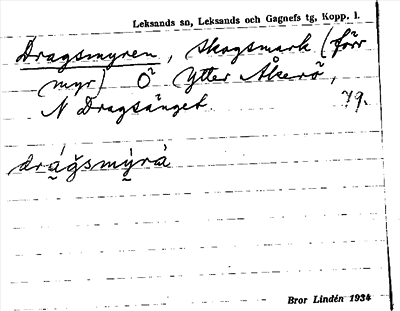 Leksands sn, Leksands och Gagnefs tg, Kopp. l.
Dragsmyren, skogsmark (förr
myr) Ö Ytter Åkerö,
N Dragsänget. 79.
dragsmýrà
Bror Lindén 1934